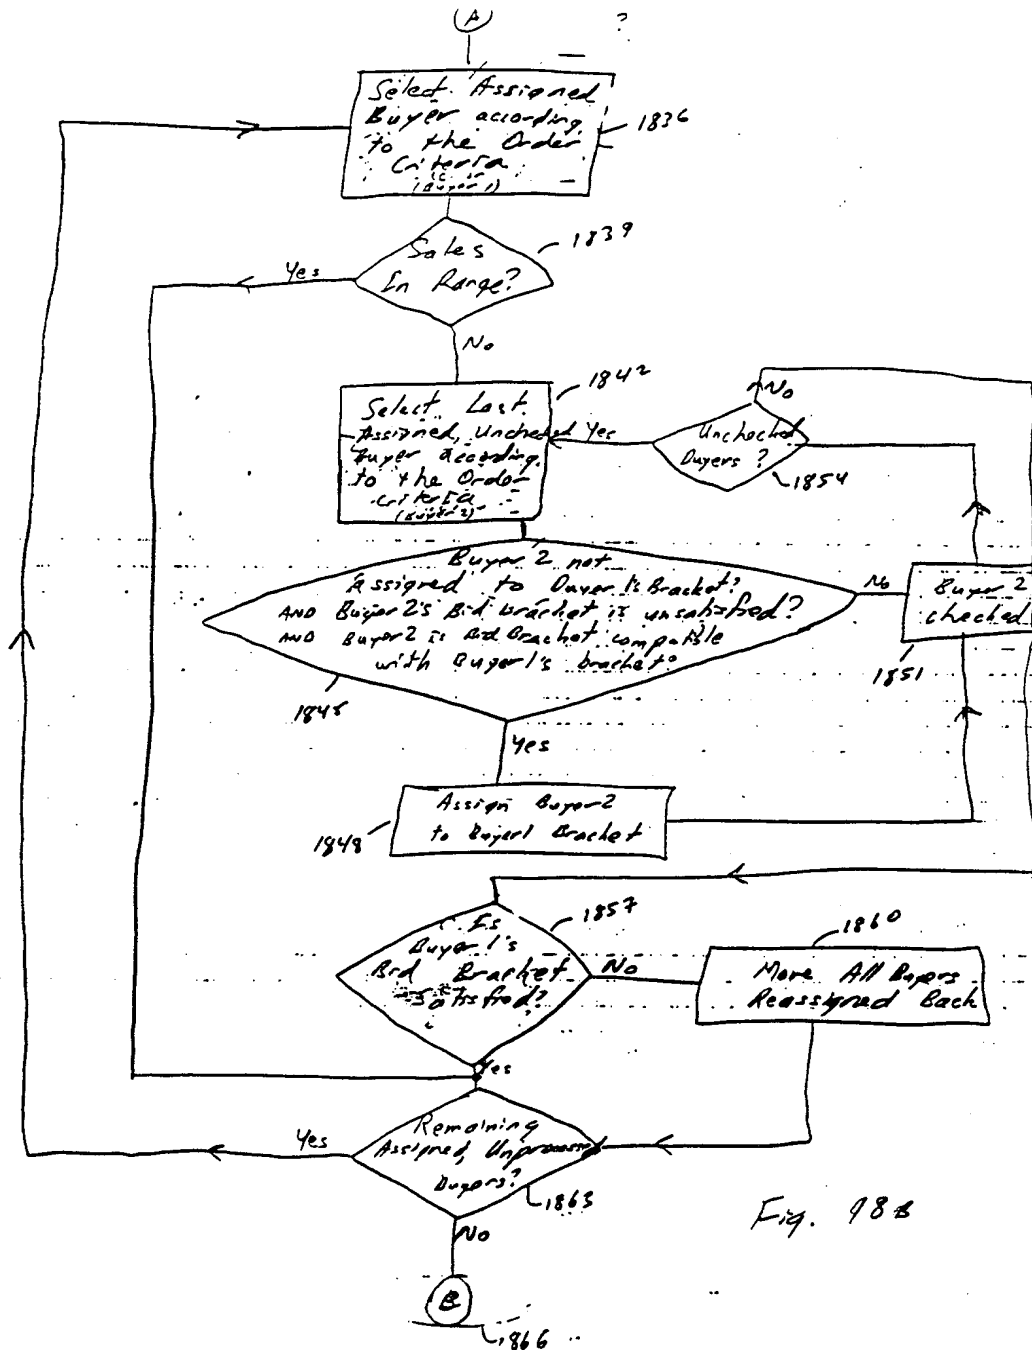 A
?
Select Assigned
Buyer according
to the Order
Criteria
(Buyer 1)
1836
Sales
In Range?
1839
Yes
No
1842
Select Last
Assigned, Unchecked
Buyer according
to the Order
Criteria
(Buyer 2)
Yes
No
Unchecked
Buyers?
1854
Buyer 2 not
Assigned to Buyer 1's Bracket?
AND Buyer 2's Bid Bracket is unsatisfied?
AND Buyer 2's Bid Bracket compatible
with Buyer 1's bracket?
1845
No
Buyer 2
checked
1851
Yes
Assign Buyer 2
to Buyer 1 Bracket
1848
Is
Buyer 1's
Bid Bracket
Satisfied?
1857
No
1860
Move All Buyers
Reassigned Back
Yes
Remaining
Assigned, Unprocessed
Buyers?
1863
Yes
No
B
1866
Fig. 18B